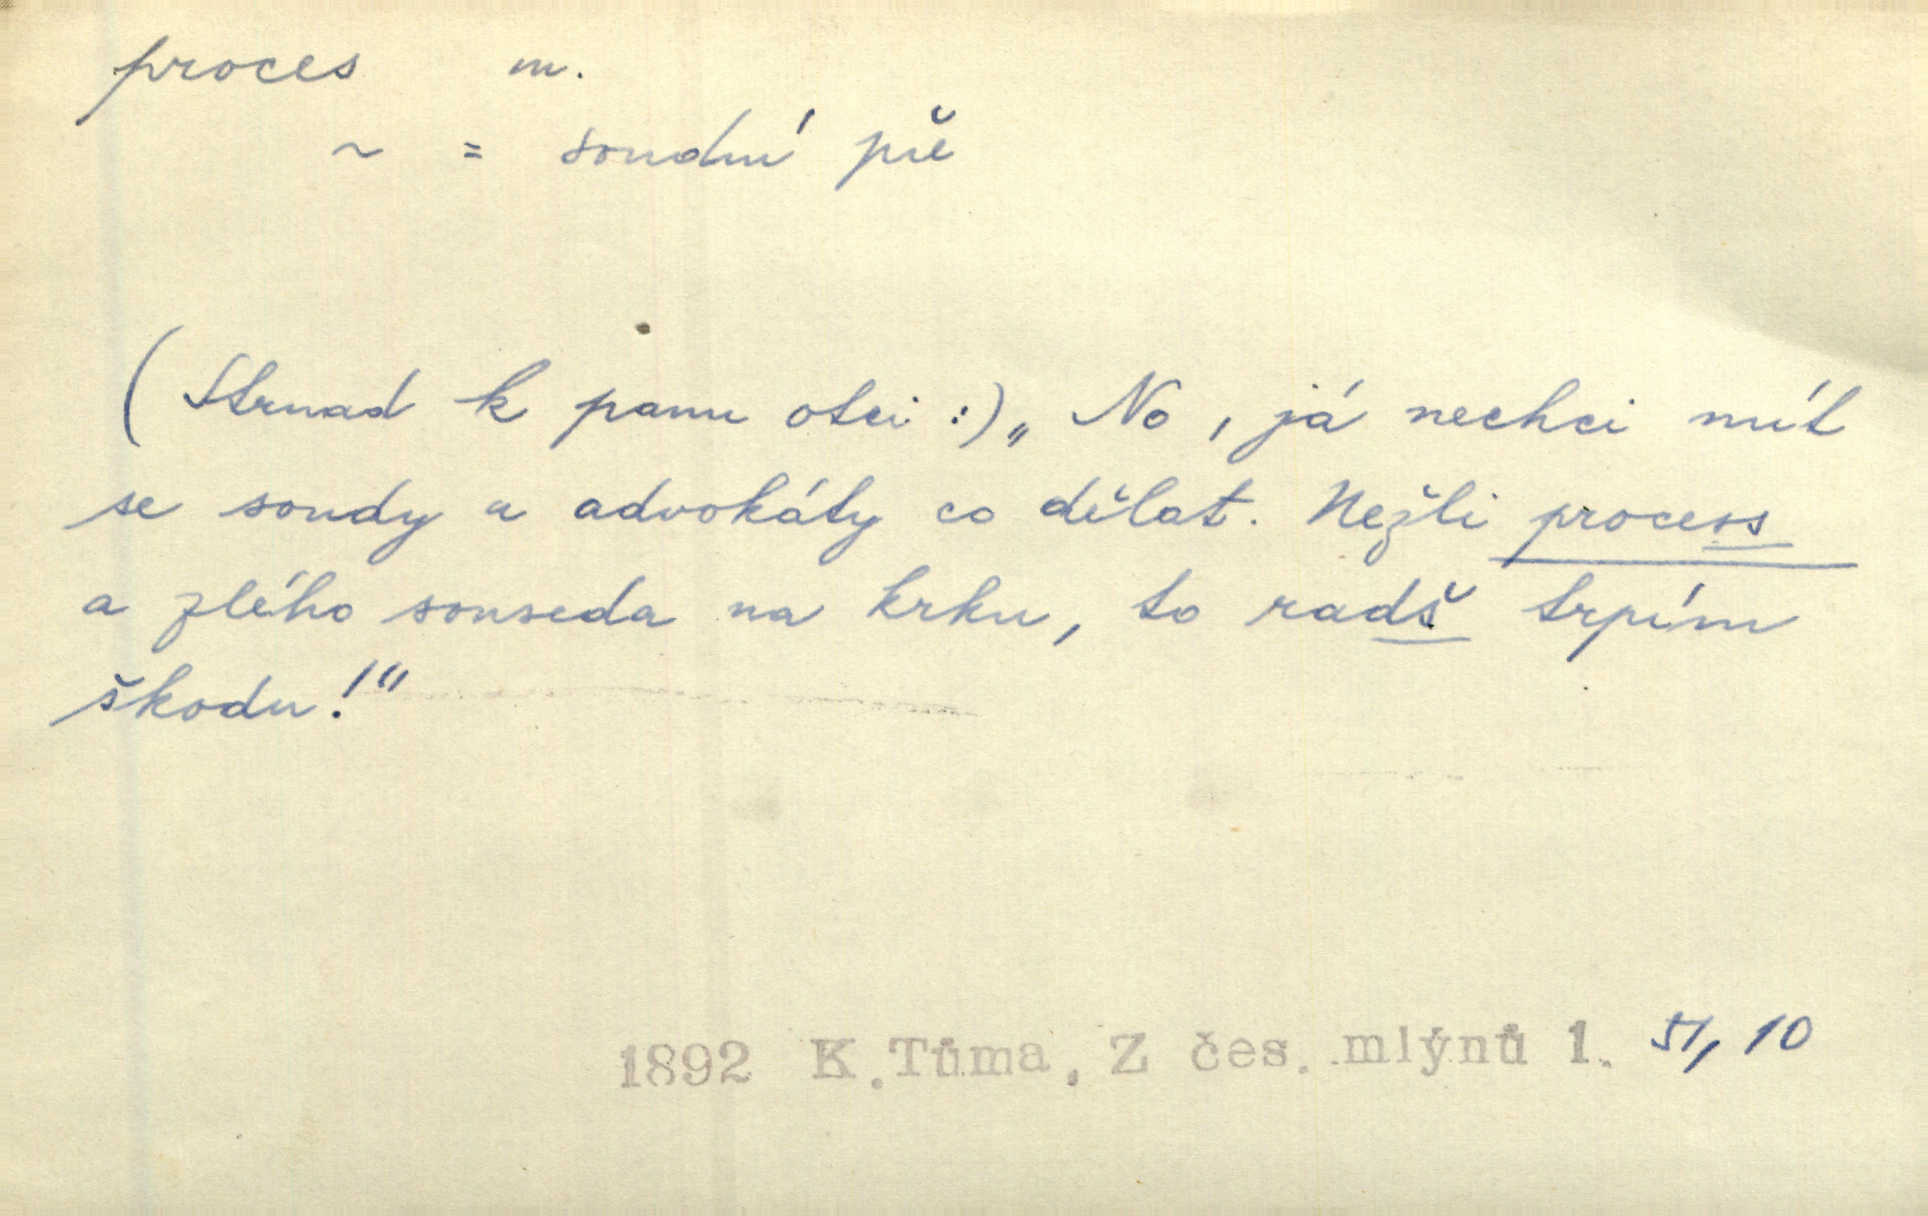 proces m.
~ = soudní pře
(Strnad k panu otci:) „No, já nechci mít
se soudy a advokáty co dělat. Nežli process
a zlého souseda na krku, to radš trpím
škodu!“
1892 K.Tůma, Z čes. mlýnů 1. 51, 10